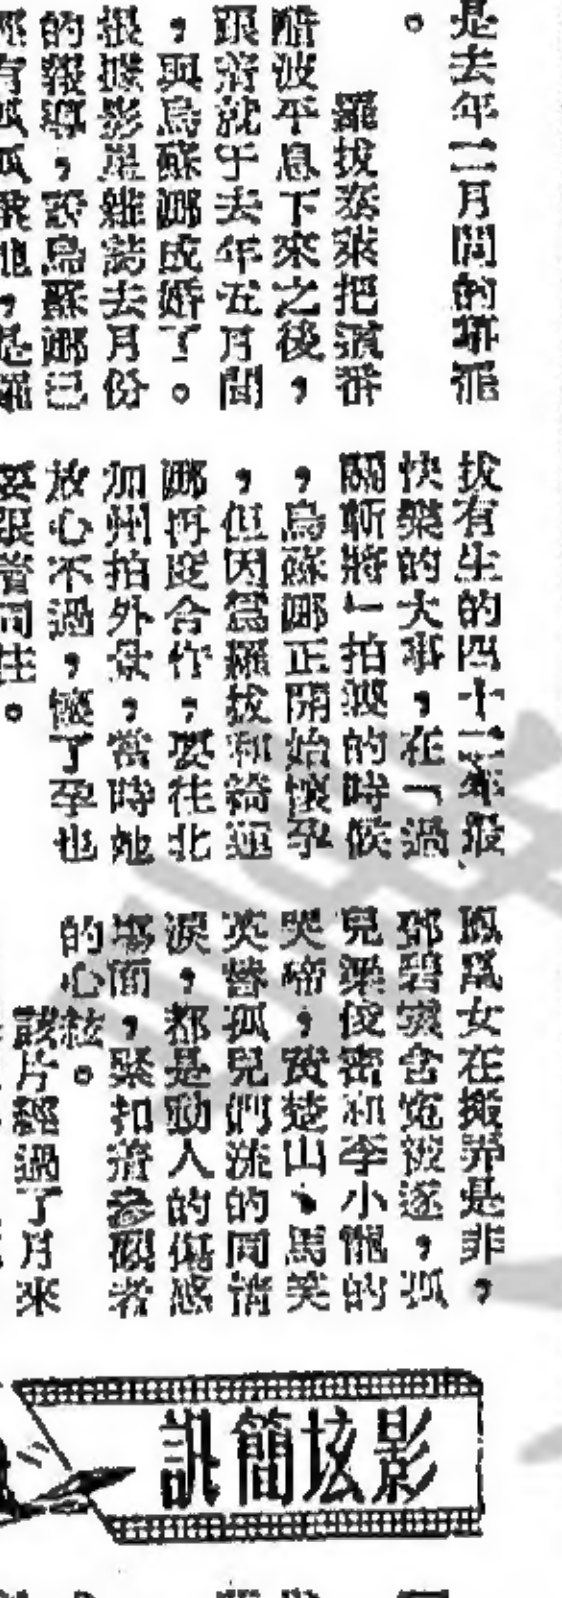 是去年二月間的事罷
。
羅拔泰來把這番
醋波平息下來之後，
跟著就于去年五月間
，與烏蘇娜成婚了。
根據影星雜誌去月份
的報導，說烏蘇娜已
拔有生的四十二年最
快樂的大事，在「過
關斬將」拍製的時候
，烏蘇娜正開始懷孕
，但因爲羅拔和綺蓮
娜再度合作，要往北
加州拍外景，當時她
放心不過，懷了孕也
要跟着同往。
鳳凰女在搬弄是非，
鄧碧雲含寃被逐，孤
兒梁俊密和李小龍的
哭啼，黃楚山、馬笑
英替孤兒們流的同情
淚，都是動人的傷感
塲面，緊扣着參觀者
的心絃。
該片經過了月來
影坛簡訊